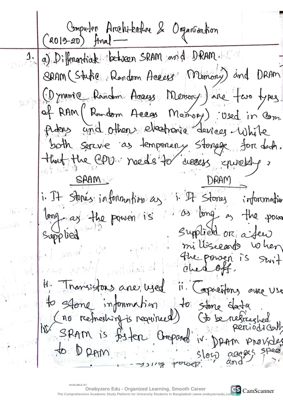 Computer Architecture & Organization
(2019-20) final
1. a) Differentiate between SRAM and DRAM.
SRAM (Static Random Access Memory) and DRAM
(Dynamic Random Access Memory) are two types
of RAM (Random Access Memory) used in com
puters and others electronic devices. While
both serve as temporary storage for data.
that the CPU needs to access quickly.
SRAM
i. It stores information as
long as the power is
supplied
ii. Transistors are used
to store information
(no refreshing is required)
SRAM is faster compared
to DRAM
DRAM
i. It stores information
as long as the power
supplied or a few
milliseconds when
the power is swit
ched off.
ii. Capacitors are use
to store data
(to be refreshed
periodically
iv. DRAM provides
slow access speed
and
Onebyzero Edu - Organized Learning, Smooth Career
The Comprehensive Academic Study Platform for University Students in Bangladesh
CS CamScanner